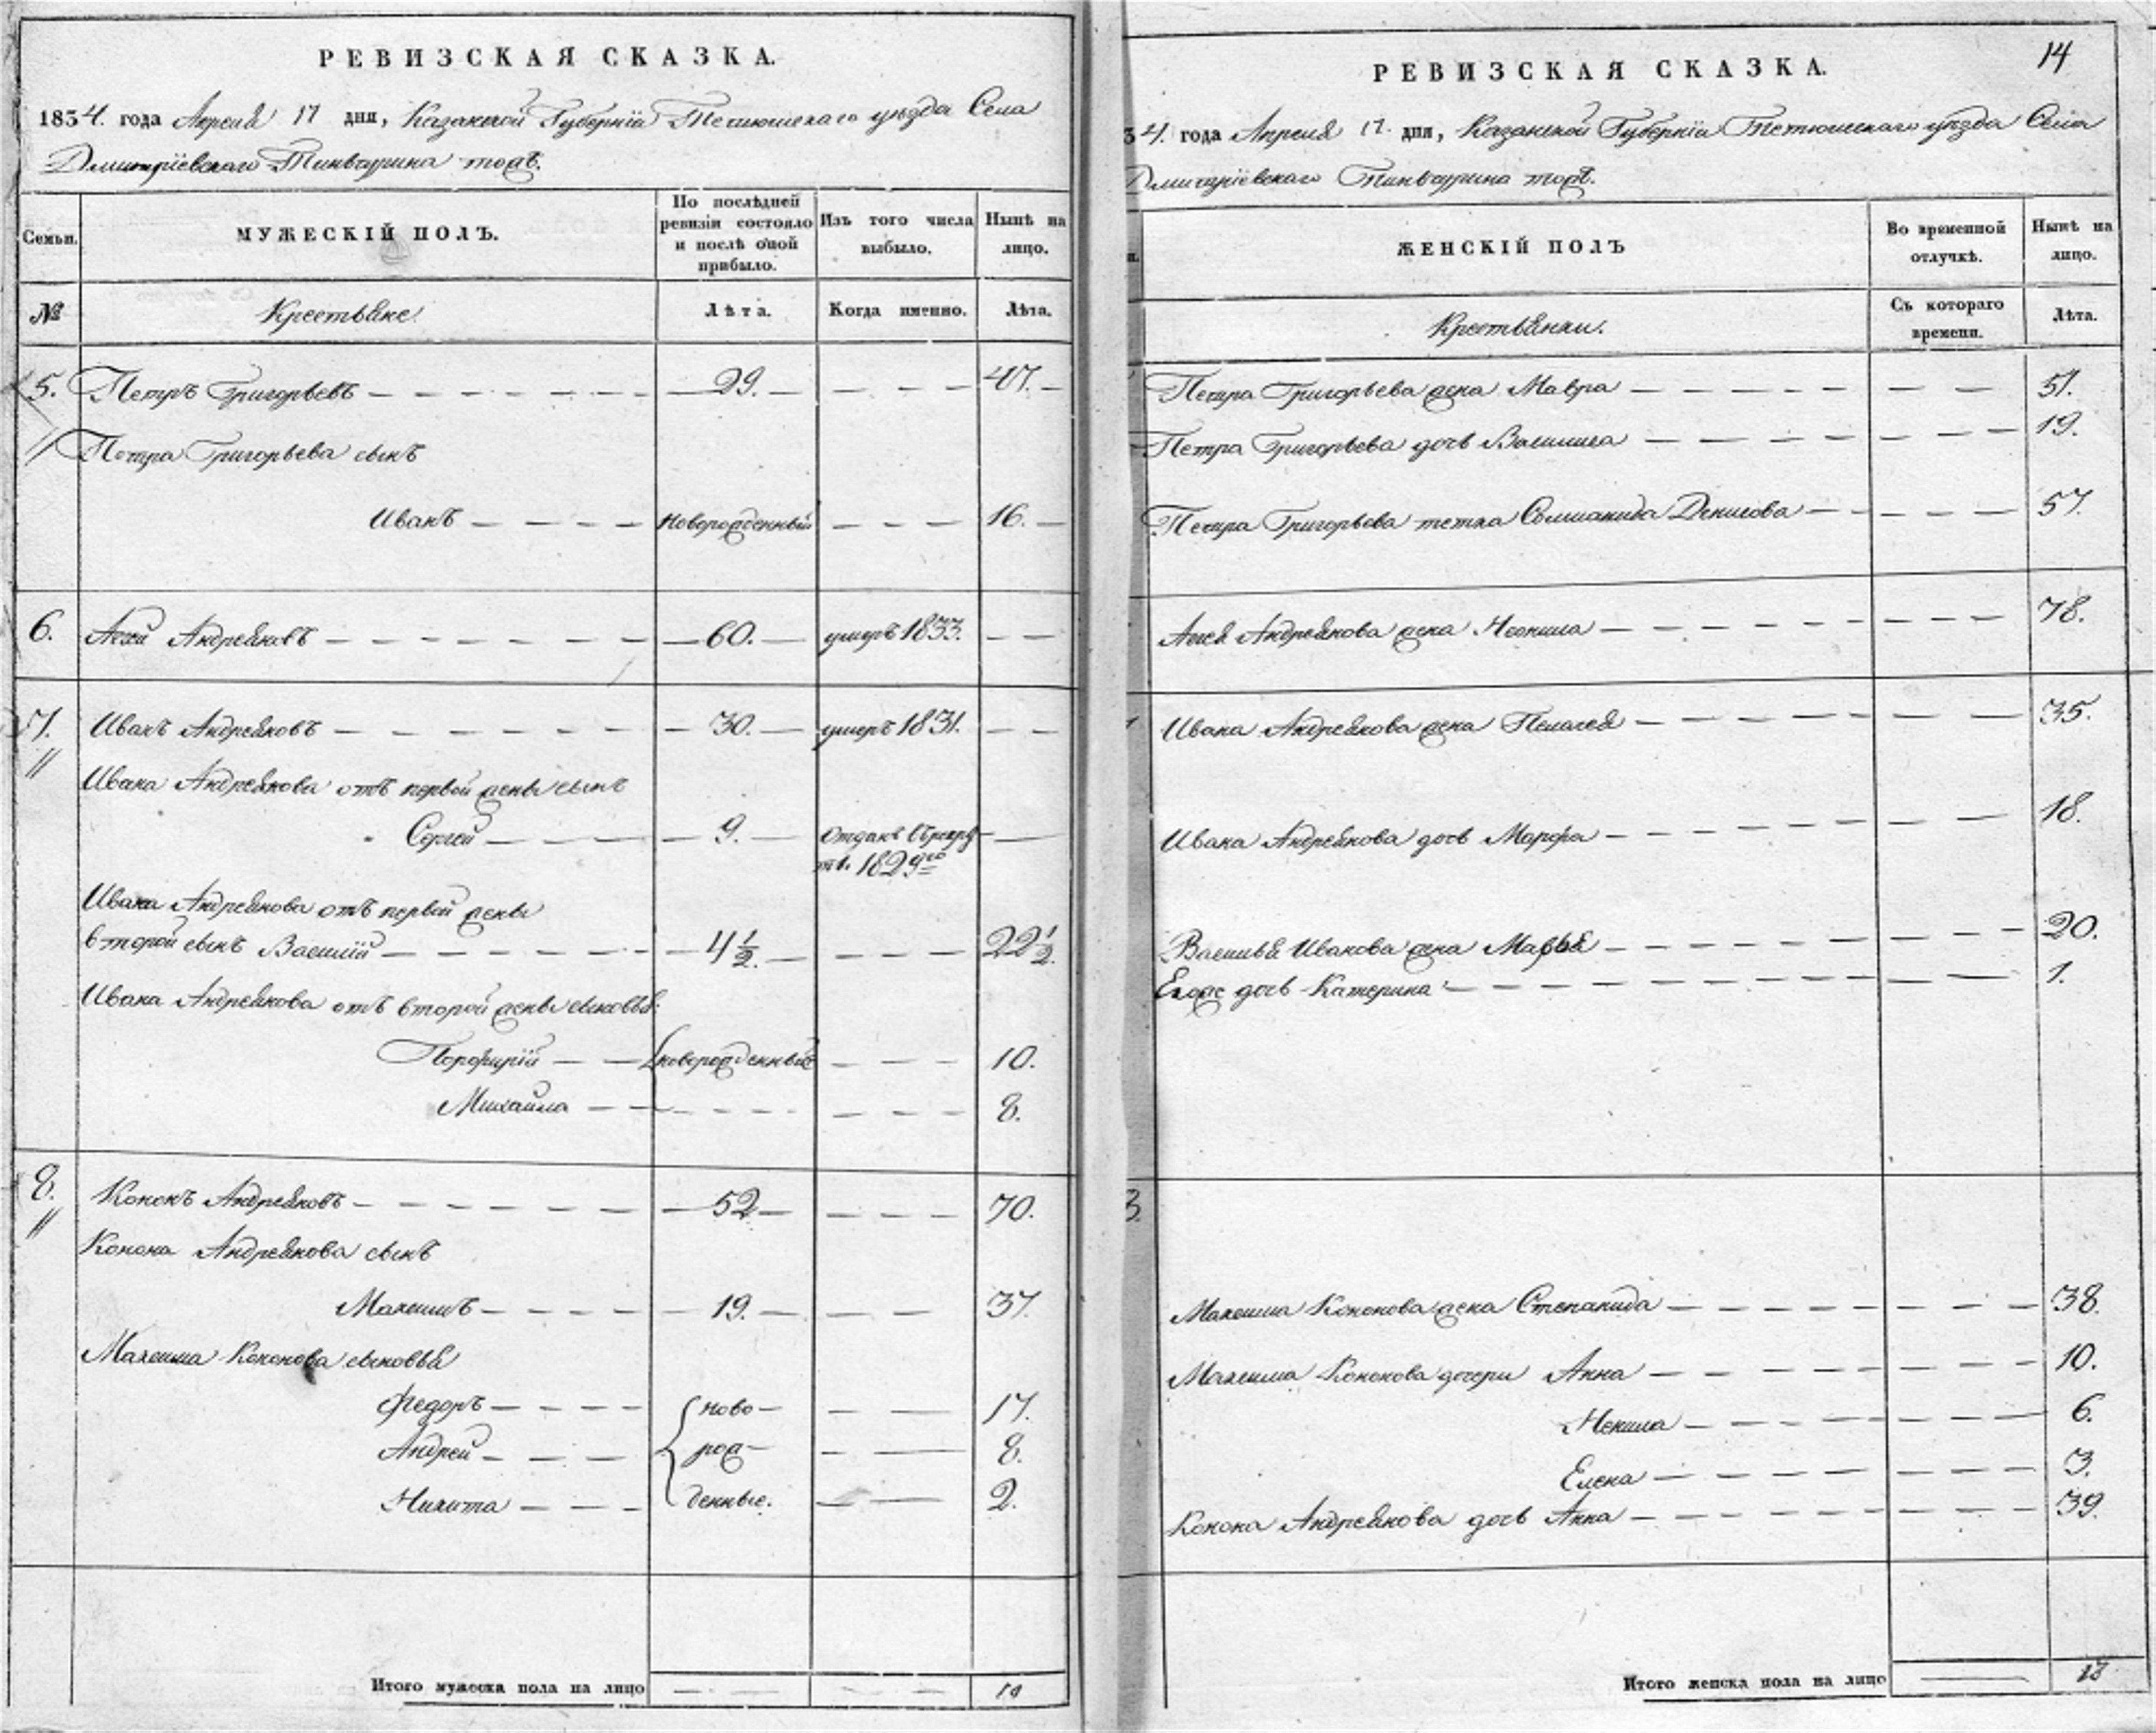 РЕВИЗСКАЯ СКАЗКА.
1834. года Апреля 17 дня, Казанской Губернїи Тетюшскаго уѣзда Села
Дмитрїевскаго тожъ.
Семьи.
МУЖЕСКІЙ ПОЛЪ.
По послѣдней ревизіи состояло и послѣ оной прибыло.
Изъ того числа выбыло.
Нынѣ на лицо.
№
Крестьяне.
Лѣта.
Когда именно.
Лѣта.
5. Петръ Григорьевъ — 29. — 47.
Петра Григорьева сынъ
Иванъ — новорожденный — 16.
6. Андреяновъ — 60. — умеръ 1833.
7. Иванъ Андреяновъ — 30. — умеръ 1831.
Ивана Андреянова отъ первой жены сынъ
Сергей — 9. — отданъ въ рекру
ты. 1829го
Ивана Андреянова отъ первой жены
второй сынъ Василий — 4 1/2. — 22 1/2.
Ивана Андреянова отъ второй жены сыновья:
Порфирїй — новорожденные — 10.
Михайла — 8.
8. Кононъ Андреяновъ — 52 — 70.
Конона Андреянова сынъ
Максимъ — 19. — 37.
Максима Кононова сыновья
Федоръ — ново- — 17.
Андрей — рож- — 8.
Никита — денные. — 2.
Итого мужеска пола на лицо — 10
14
РЕВИЗСКАЯ СКАЗКА.
34. года Апреля 17. дня, Казанской Губернїи Тетюшскаго уѣзда Села
Дмитрїевскаго тожъ.
ЖЕНСКІЙ ПОЛЪ
Во временной отлучкѣ.
Нынѣ на лицо.
Крестьянки.
Съ котораго времени.
Лѣта.
Петра Григорьева жена Мавра — 51.
Петра Григорьева дочь Василиса — 19.
Петра Григорьева тетка Соломанида Денисова — 57.
Андреянова жена Неонила — 78.
Ивана Андреянова жена Пелагея — 35.
Ивана Андреянова дочь Марфа — 18.
Василья Иванова жена Марья — 20.
Егоже дочь Катерина — 1.
Максима Кононова жена Степанида — 38.
Максима Кононова дочери Анна — 10.
Ненила — 6.
Елена — 3.
Конона Андреянова дочь Анна — 39.
Итого женска пола на лицо